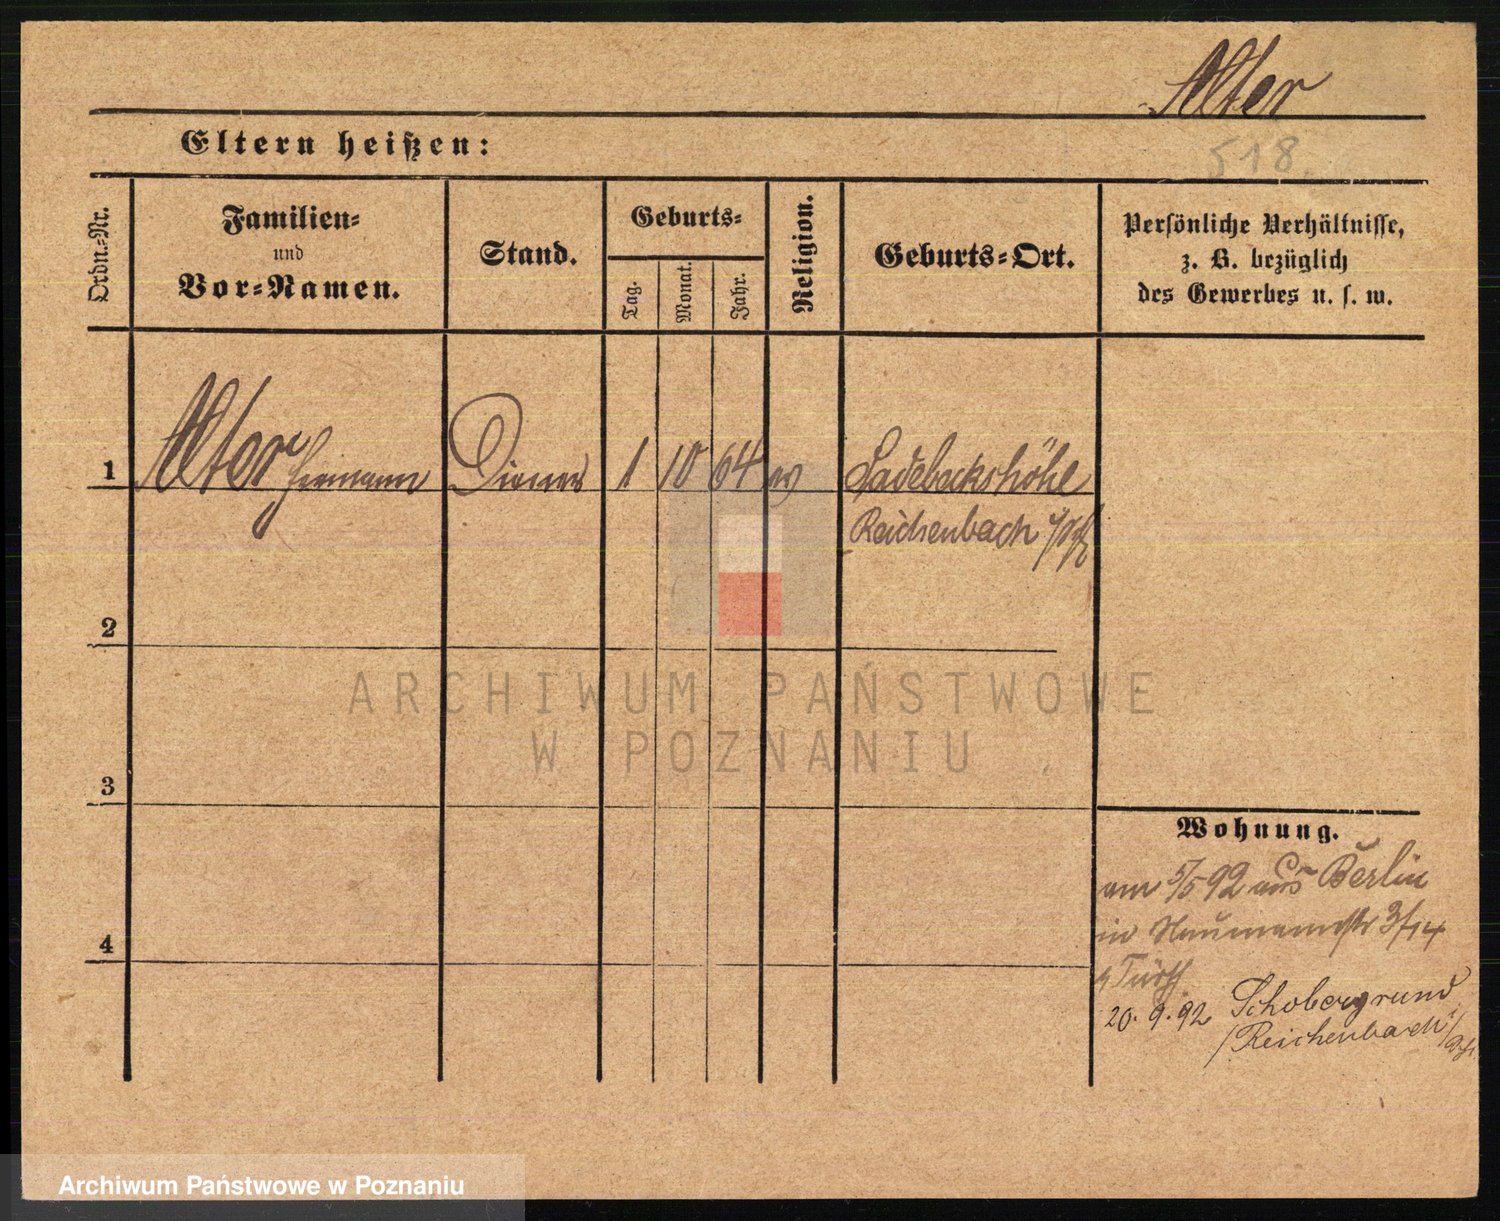 Alter
518.
Eltern heißen:
Ordn.-Nr.
Familien-
und
Vor-Namen.
Stand.
Geburts-
Tag.
Monat.
Jahr.
Religion.
Geburts-Ort.
Persönliche Verhältnisse,
z. B. bezüglich
des Gewerbes u. s. w.
1 Alter Hermann Diener 1 10 64 ev Ladebackshöhe
Reichenbach
2
ARCHIWUM PAŃSTWOWE
W POZNANIU
3
Wohnung.
am 5/5 92 aus Berlin
in Naumannstr 3/14
4
20. 9. 92 Schobergrund
/Reichenbach
Archiwum Państwowe w Poznaniu